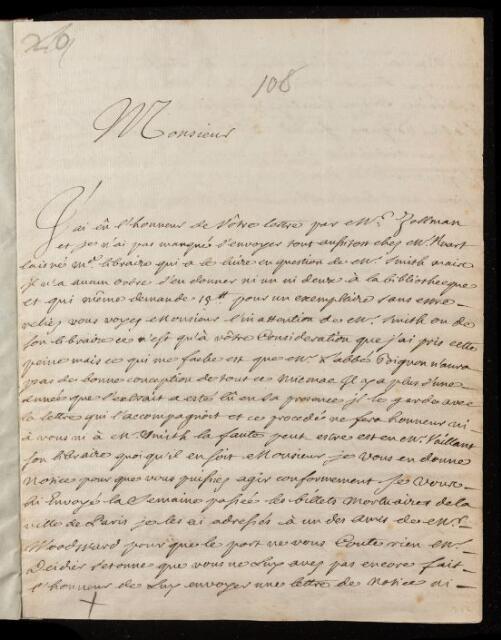 108
Monsieur
J'ai eû l'honneur de Vôtre lettre par Mr. Zollman
et je n'ai pas manqué d'envoyer tout aussitost chez Mr. Huart
laisné Md. libraire qui a le livre en question de Mr. Smith mais
Il n'a aucun ordre d'en donner ni un ni deux à la bibliotheque
et qui même demande 15tt pour un exemplaire sans estre
reliez vous voyez Monsieur l'inattention de Mr. Smith ou de
son libraire ce n'est qu'à vôtre Consideration que j'ai pris cette
peine mais ce qui me fache est que Mr. l'abbé Bignon n'aura
pas de bonne conception de tout ce micmac Il y a plus d'une
année que l'extrait a esté lû en sa presence je le garde avec
la lettre qui l'accompagnoit et ce procedé ne fera honneur ni
à vous ni à Mr. Smith la faute peut estre est en Mr. Vaillant
son libraire quoi qu'il en soit Monsieur je vous en donne
Notice pour que vous puissiez agir conformement Je vous
ai Envoyé la Semaine passée les billets Mortuaires de la
ville de Paris je les ai adressés à un des amis de Mr.
Woodward pour que le port ne vous Coute rien Mr.
s'etonne que vous ne Luy avez pas encore fait
l'honneur de Luy envoyer une lettre de Notice